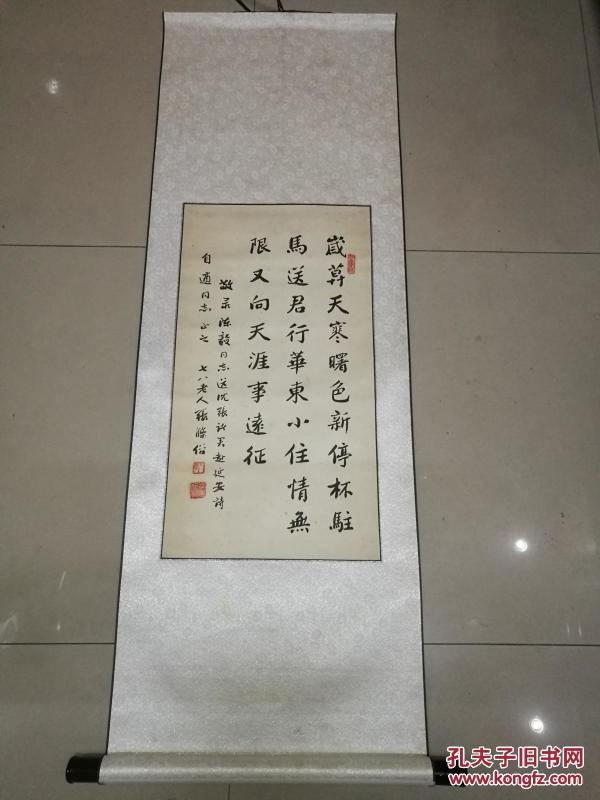 歲莫天寒曙色新停杯駐
馬送君行華東小住情無
限又向天涯事遠征
敬录陈毅同志送沈張諸君赴延安詩
自適同志正之 七八老人張滌俗
孔夫子旧书网
www.kongfz.com